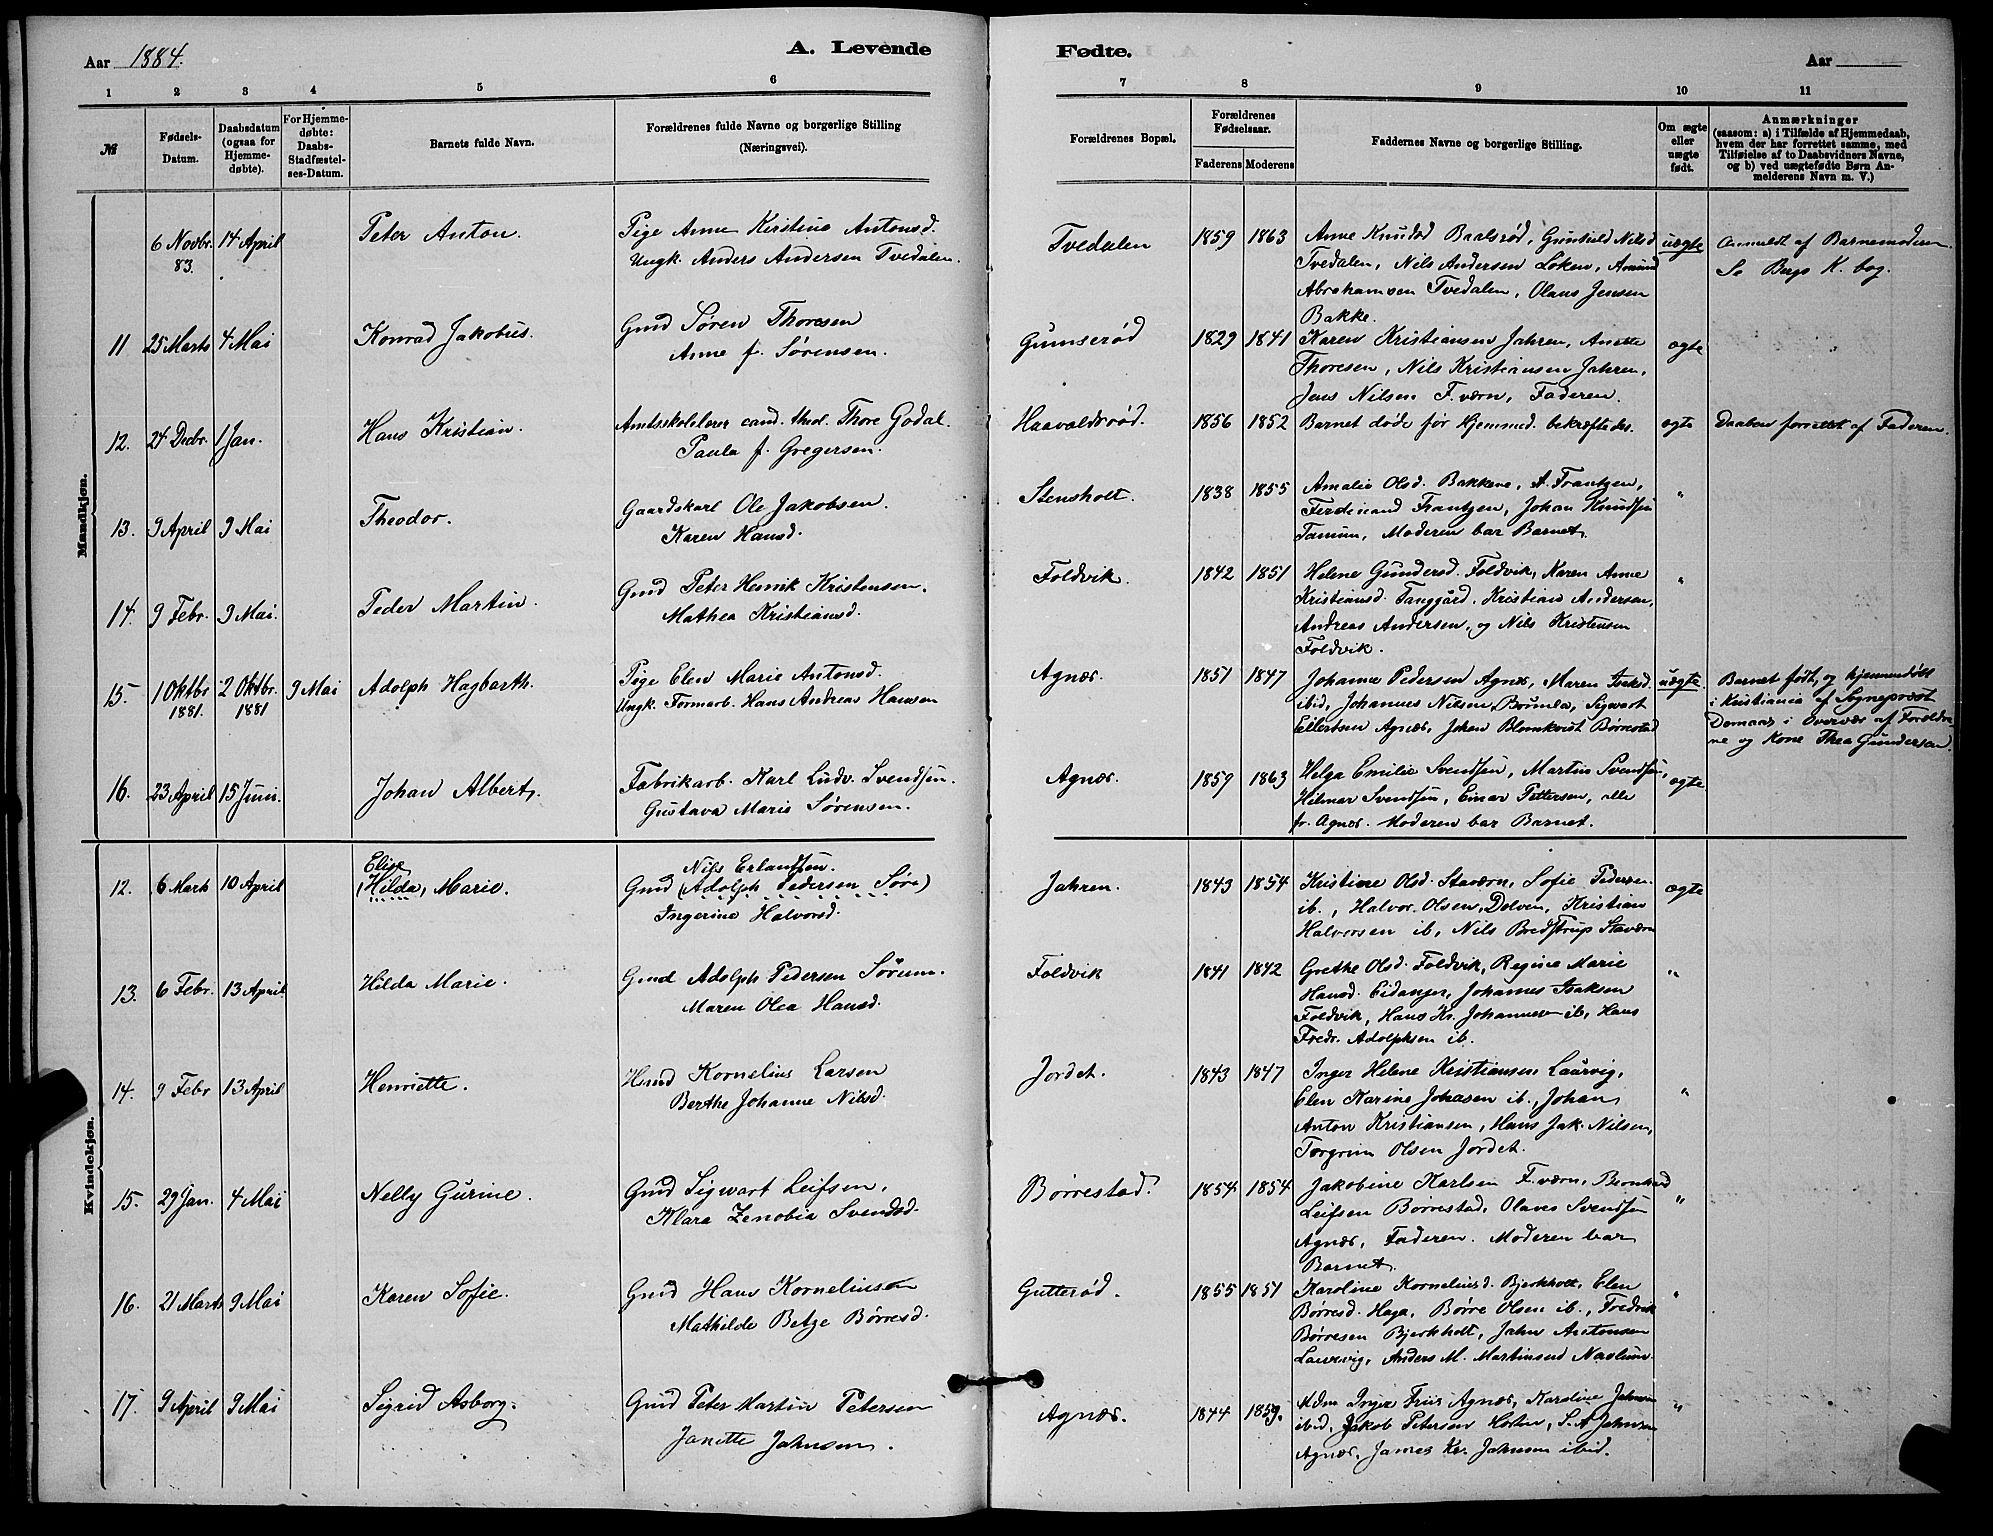 Aar 1884.
A. Levende
Fødte.
Aar
1 2 3 4 5 6 7 8 9 10 11
№
Fødsels-Datum.
Daabsdatum (ogsaa for Hjemmedøbte).
For Hjemmedøbte: Daabs-Stadfæstelses-Datum.
Barnets fulde Navn.
Forældrenes fulde Navne og borgerlige Stilling (Næringsvei).
Forældrenes Bopæl.
Forældrenes Fødselsaar.
Faderens Moderens
Faddernes Navne og borgerlige Stilling.
Om ægte eller uægte født.
Anmærkninger (saasom: a) i Tilfælde af Hjemmedaab, hvem der har forrettet samme, med Tilføielse af to Daabsvidners Navne, og b) ved uægtefødte Børn Anmelderens Navn m. V.)
Mandkjøn.
6 Novbr. 83. 14 April
Peter Anton.
Pige Anne Kirstine Antonsd.
Ungk. Anders Andersen Tvedalen.
Tvedalen 1859 1863
Anne Knudsd Baalsrød, Gunhild Nilsd
Tvedalen, Nils Andersen Løken, Amund
Abrahamsen Tvedalen, Olaus Jensen
Bakke.
uægte
Anmeldt af Barnemoderen
Se Bergs K. bog.
11 25 Marts 4 Mai
Konrad Jakobus.
Gmd Søren Thoresen
Anne f. Sørensen.
Gumserød 1829 1841
Karen Kristiansen Jahren, Anette
Thoresen, Nils Kristiansen Jahren,
Jans Nilsen F.værn, Faderen.
ægte
12. 24 Decbr. 1 Jan.
Hans Kristian.
Amtsskolelærer cand. theol. Thore Godal
Paula f. Gregersen.
Haavaldsrød. 1856 1852
Barnet døde før Hjemmed. bekræftedes.
ægte
Daaben forrettet af Faderen.
13. 9 April 9 Mai
Theodor.
Gaardskarl Ole Jakobsen.
Karen Hansd.
Stensholt. 1838 1855
Amalie Olsd. Bakkene, A. Frantzen,
Ferdinand Frantzen, Johan Knudsen
Tanum, Moderen bar Barnet.
"
14. 9 Febr. 9 Mai.
Peder Martin.
Gmd Peter Henrik Kristensen.
Mathea Kristiansd.
Foldvik. 1842 1851
Helene Gundersd. Foldvik, Karen Anne
Kristiansd. Tanggård, Kristian Andersen,
Andreas Andersen, og Nils Kristensen
Foldvik.
"
15. 1 Oktbr 1881. 2 Oktbr. 1881 9 Mai
Adolph Hagbarth.
Pige Elen Marie Antonsd.
Ungk. Formarb. Hans Andreas Hansen
Agnæs. 1851 1847
Johanne Pedersen Agnæs, Maren Isaksd.
ibid, Johannes Nilsen Brunla, Sigwart
Eilertsen Agnæs, Johan Blomkvist Børrestad
uægte.
Barnet født og hjemmedøbt
i Kristiania af Sogneprovst
Domaas i Overvær af Forældre-
ne og Kone Thea Gundersen.
16. 23 April 15 Juni.
Johan Albert.
Fabrikarb. Karl Ludv. Svendsen.
Gustava Marie Sørensen.
Agnæs. 1859 1863
Helga Emilie Svendsen, Martin Svendsen,
Hilmar Svendsen, Einar Pettersen, alle
fr. Agnæs. Moderen bar Barnet.
ægte
Kvindekjøn.
12. 6 Marts 10 April
Elise
(Hilda) Marie.
Nils Erlandsen
Gmd (Adolph Pedersen Søre)
Ingerine Halvorsd.
Jahren. 1843 1854
Kristine Olsd. Staværn, Sofie Peders
ib., Halvor Olsen, Dolven, Kristian
Halvorsen ib, Nils Bredstrup Staværn
ægte
13. 6 Febr. 13 April
Hilda Marie.
Gmd Adolph Pedersen Sørum.
Maren Olea Hansd.
Foldvik 1841 1842
Grethe Olsd. Foldvik, Regine Marie
Hansd. Eidanger, Johannes Isaksen
Foldvik, Hans Kr. Johannesen ib, Hans
Fredr. Adolphsen ib.
"
14. 9 Febr 13 April
Henriette.
Hmd Kornelius Larsen
Berthe Johanne Nilsd.
Jordet. 1843 1847
Inger Helene Kristiansen Laurvig,
Elen Karine Johasen ib., Johan
Anton Kristiansen, Hans Jak. Nilsen,
Torgrim Olsen Jordet.
"
15. 29 Jan. 4 Mai
Nelly Gurine.
Gmd Sigwart Leifsen,
Klara Zenobia Svendsd.
Børrestad. 1854 1854
Jakobine Karlsen F.værn, Bernhard
Leifsen Børrestad, Olaves Svendsen
Agnæs, Faderen. Moderen bar
Barnet.
"
16. 21 Marts 9 Mai
Karen Sofie.
Gmd Hans Korneliussen
Mathilde Betze Børresd.
Gutterød. 1855 1851
Karoline Korneliusd. Bjerkholt, Elen
Børresd. Haga, Børre Olsen ib., Fredrik
Børresen Bjerkholt, Jahn Antonsen
Laurvig, Anders M. Martinsen Naslum.
"
17. 9 April 9 Mai
Sigrid Asborg.
Gmd Peter Martin Petersen
Janette Jahnsen.
Agnæs. 1844 1859.
Mdm Inger Friis Agnæs, Karoline Jahnsen
ibid, Jakob Petersen Horten, S. A. Jahnsen
Agnæs, James Kr. Jahnsen ibid.
"